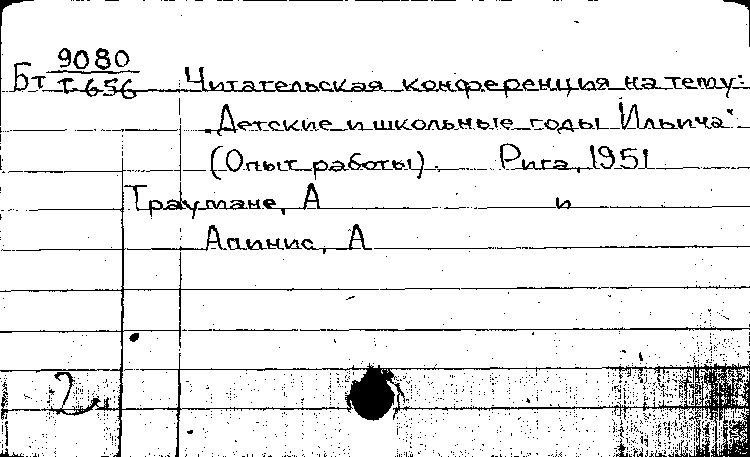 Бт 9080
Т-656 Читательская конференция на тему:
„Детские и школьные годы Ильича"
(Опыт работы). Рига, 1951
Траумане, А и
Апинис, А
2